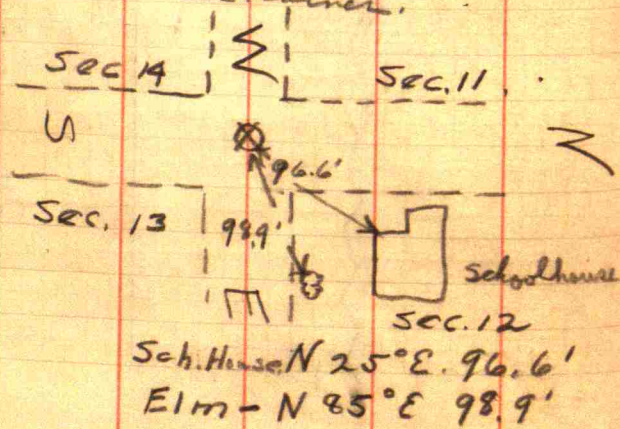 W
Sec 14
Sec. 11
S
N
96.6'
Sec. 13
98.9'
Schoolhouse
E
Sec. 12
Sch. House N 25° E. 96.6'
Elm - N 85° E 98.9'